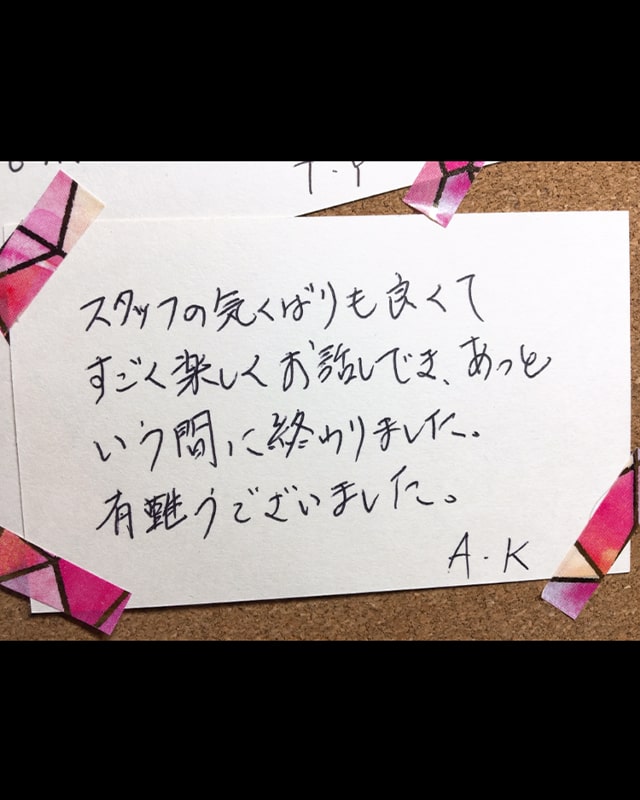 T.Y
スタッフの気くばりも良くて
すごく楽しくお話しでき、あっと
いう間に終わりました。
有難うございました。
A.K